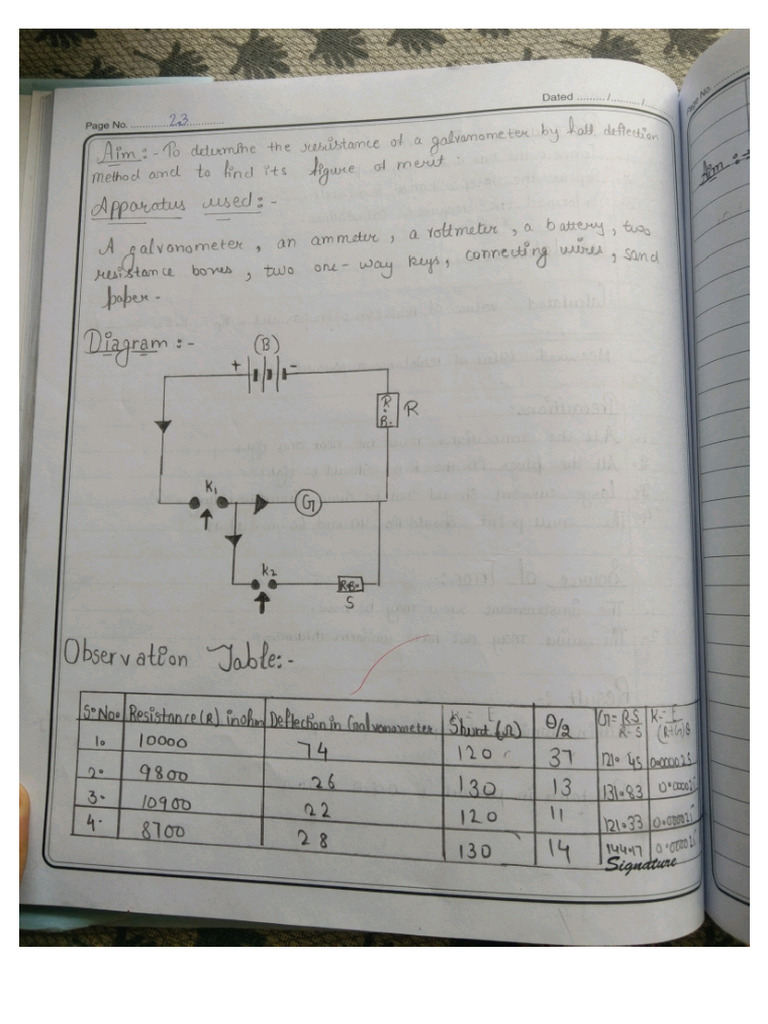 Dated ........./........../....
Page No. ............23............
Page No.
Aim :- To determine the resistance of a galvanometer by half deflection
method and to find its figure of merit
Aim :-
Apparatus used :-
A galvonometer, an ammeter, a voltmeter, a battery, two
resistance boxes, two one-way keys, connecting wires, sand
paper.
Diagram :-
(B)
+ -
R.B. R
K1
G
K2
R.B.
S
Observation Table:-
S.No. Resistance (R) in ohm Deflection in Galvanometer Shunt (Ω) θ/2 G = RS/R-S K = E/(R+G)θ
1. 10000 74 120 37 121.45 0.000025
2. 9800 26 130 13 131.83
3. 10900 22 120 11 121.33
4. 8700 28 130 14
Signature